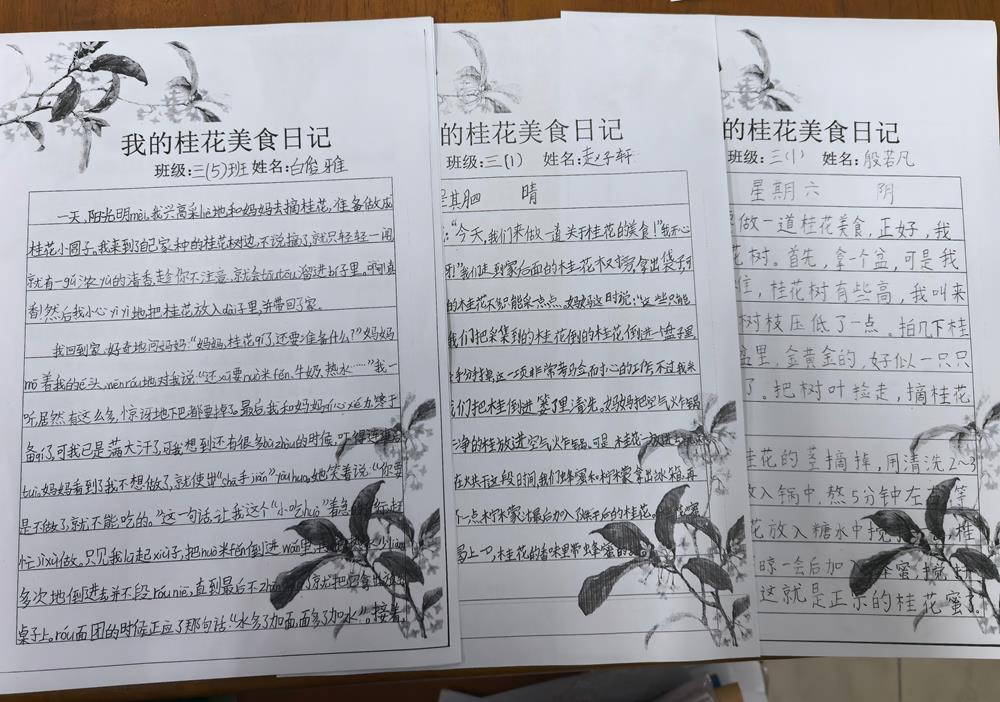 我的桂花美食日记
班级:三(5)班 姓名:白俊雅
一天,阳光明mèi,我兴高采liè地和妈妈去摘桂花,准备做成
桂花小圆子。我来到了自己家种的桂花树边,不说摘了,就只轻轻一闻
就有一gǔ浓yù的清香,趁你不注意,就会tōutōu溜进bí子里,啊!真
香!然后我小心yìyì地把桂花放入dài子里,并带回了家。
我回到家,好奇地问妈妈:“妈妈,桂花有了,还要准备什么?”妈妈
mō着我的é头,wēnróu地对我说:“还xū要nuò米fěn、牛奶、热水……”我一
听居然有这么多,惊讶地下巴都要掉了。最后我和妈妈
备了,可我已是满大汗了,可我想到还有很多bùzhòu的时候,吓得
tuǐ,妈妈看到了我不想做了,就使出“shā手jiǎn”yòuhuò,她笑着说:“你要
是不做了,就不能吃的。”这一句话让我这个“小吃huò”着急
忙jìxù做。只见我lū起xiù子,把nuò米fěn倒进wǎn里,
多次地倒进去并不段róuniē,直到最后不zhān
桌子上。róu面团的时候正应了那句话:“水多了加面,面多了加水”。接着,
的桂花美食日记
班级:三(1) 姓名:赵子轩
晴
:“今天,我们来做一道关于桂花的美食!”我开心
我们走到家后面的桂花树旁,拿出袋子,可
的桂花不多,只能采一点点。妈妈这时说:“这些只能
我们把采集到的桂花倒进一盘子里
这一项非常考马佥而小心的工作,不过我来
我们把桂花倒进篓子里清洗。妈妈把空气火乍锅
净的桂放进空气火乍锅,可是,桂花一放进去
在火共干这段时间,我们蜂蜜和柠檬拿出冰箱,再
下一点柠檬汁,最后加入
马上一口,桂花的香味里带
的桂花美食日记
班级:三(1) 姓名:殷若凡
星期六 阴
做一道桂花美食,正好,我
花树。首先,拿一个盆,可是我
,桂花树有些高,我叫来
树枝压低了一点。拍几下桂
盆里,金黄金的,好似一只只
了。把树叶捡走,摘桂花
桂花的茎摘掉,用清洗2~3
放入锅中,熬5分钟左右,等
花放入糖水中搅
晾一会后加入蜂蜜,搅
这就是正宗的桂花蜜了。